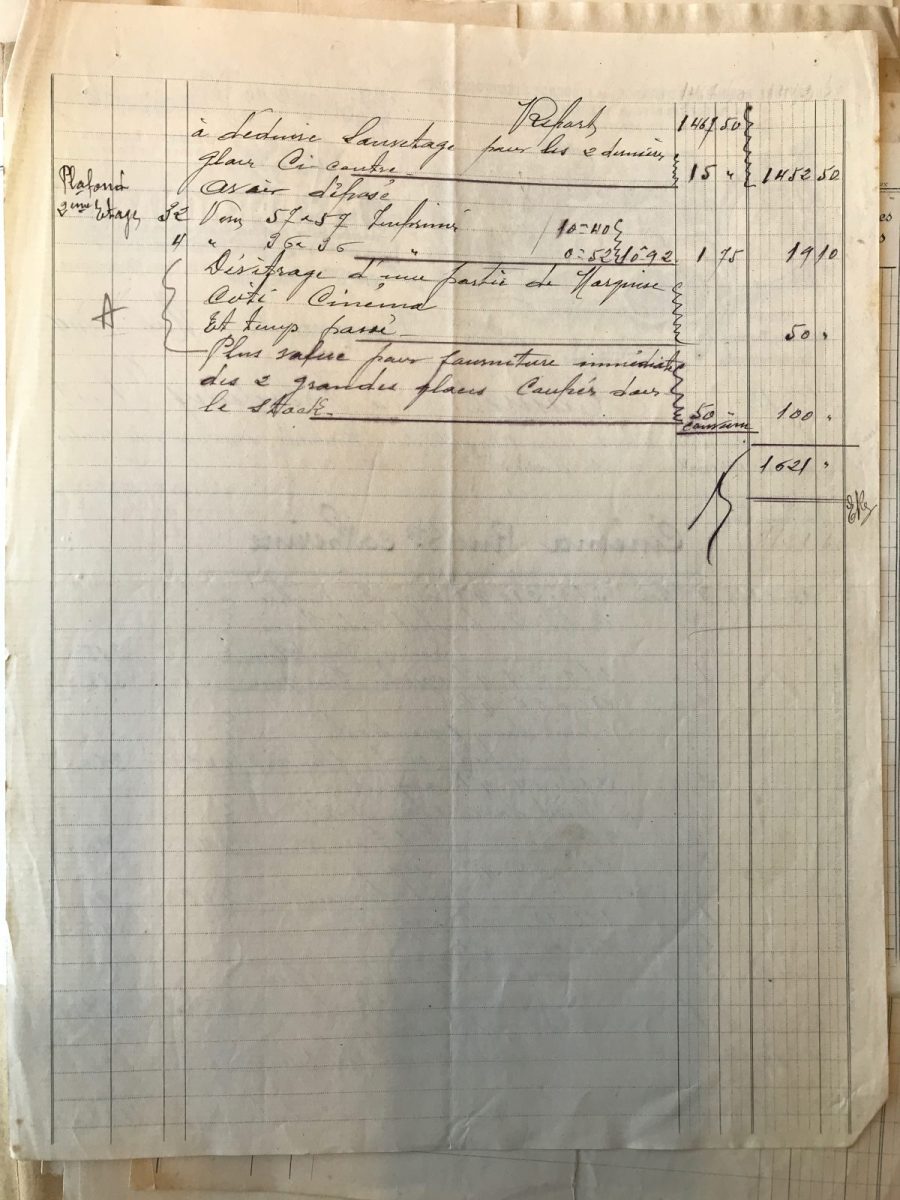 Report 1467 50
à déduire Sauvetage pour les 2 derniers
glaces Ci contre 15 " 1452 50
Plafond avoir déposé
2ème Etage 32 Verres 57 à 57 Imprimé 10=40
4 " 36 à 36 " 0=52 10=92 1 75 19 10
Désitrage d'une partie de Marquise
A Côté Cinéma
Et temps passé 50 "
Plus value pour fourniture immédiate
des 2 grandes glaces Coupés dans
le stock 50 " 100 "
1621 "